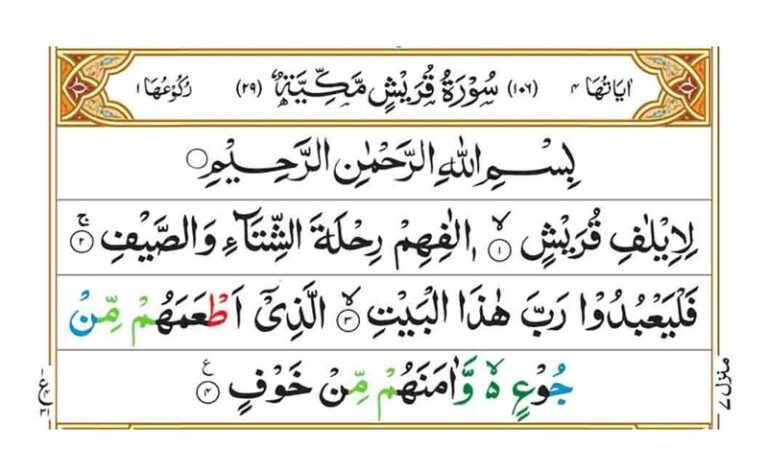 اٰيَاتُهَا ٤ (١٠٦) سُوۡرَةُ قُرَيۡشٍ مَّكِّيَّةٌ (٢٩) رُكُوۡعُهَا ١
بِسۡمِ اللّٰهِ الرَّحۡمٰنِ الرَّحِيۡمِ
لِاِيۡلٰفِ قُرَيۡشٍ ۙ‏ ١ اٖلٰفِهِمۡ رِحۡلَةَ الشِّتَآءِ وَالصَّيۡفِ ۚ‏ ٢
فَلۡيَعۡبُدُوۡا رَبَّ هٰذَا الۡبَيۡتِ ۙ‏ ٣ الَّذِىۡۤ اَطۡعَمَهُمۡ مِّنۡ
جُوۡعٍ ۙ۬ وَّاٰمَنَهُمۡ مِّنۡ خَوۡفٍ ٤ ع
منزل ٧
ع